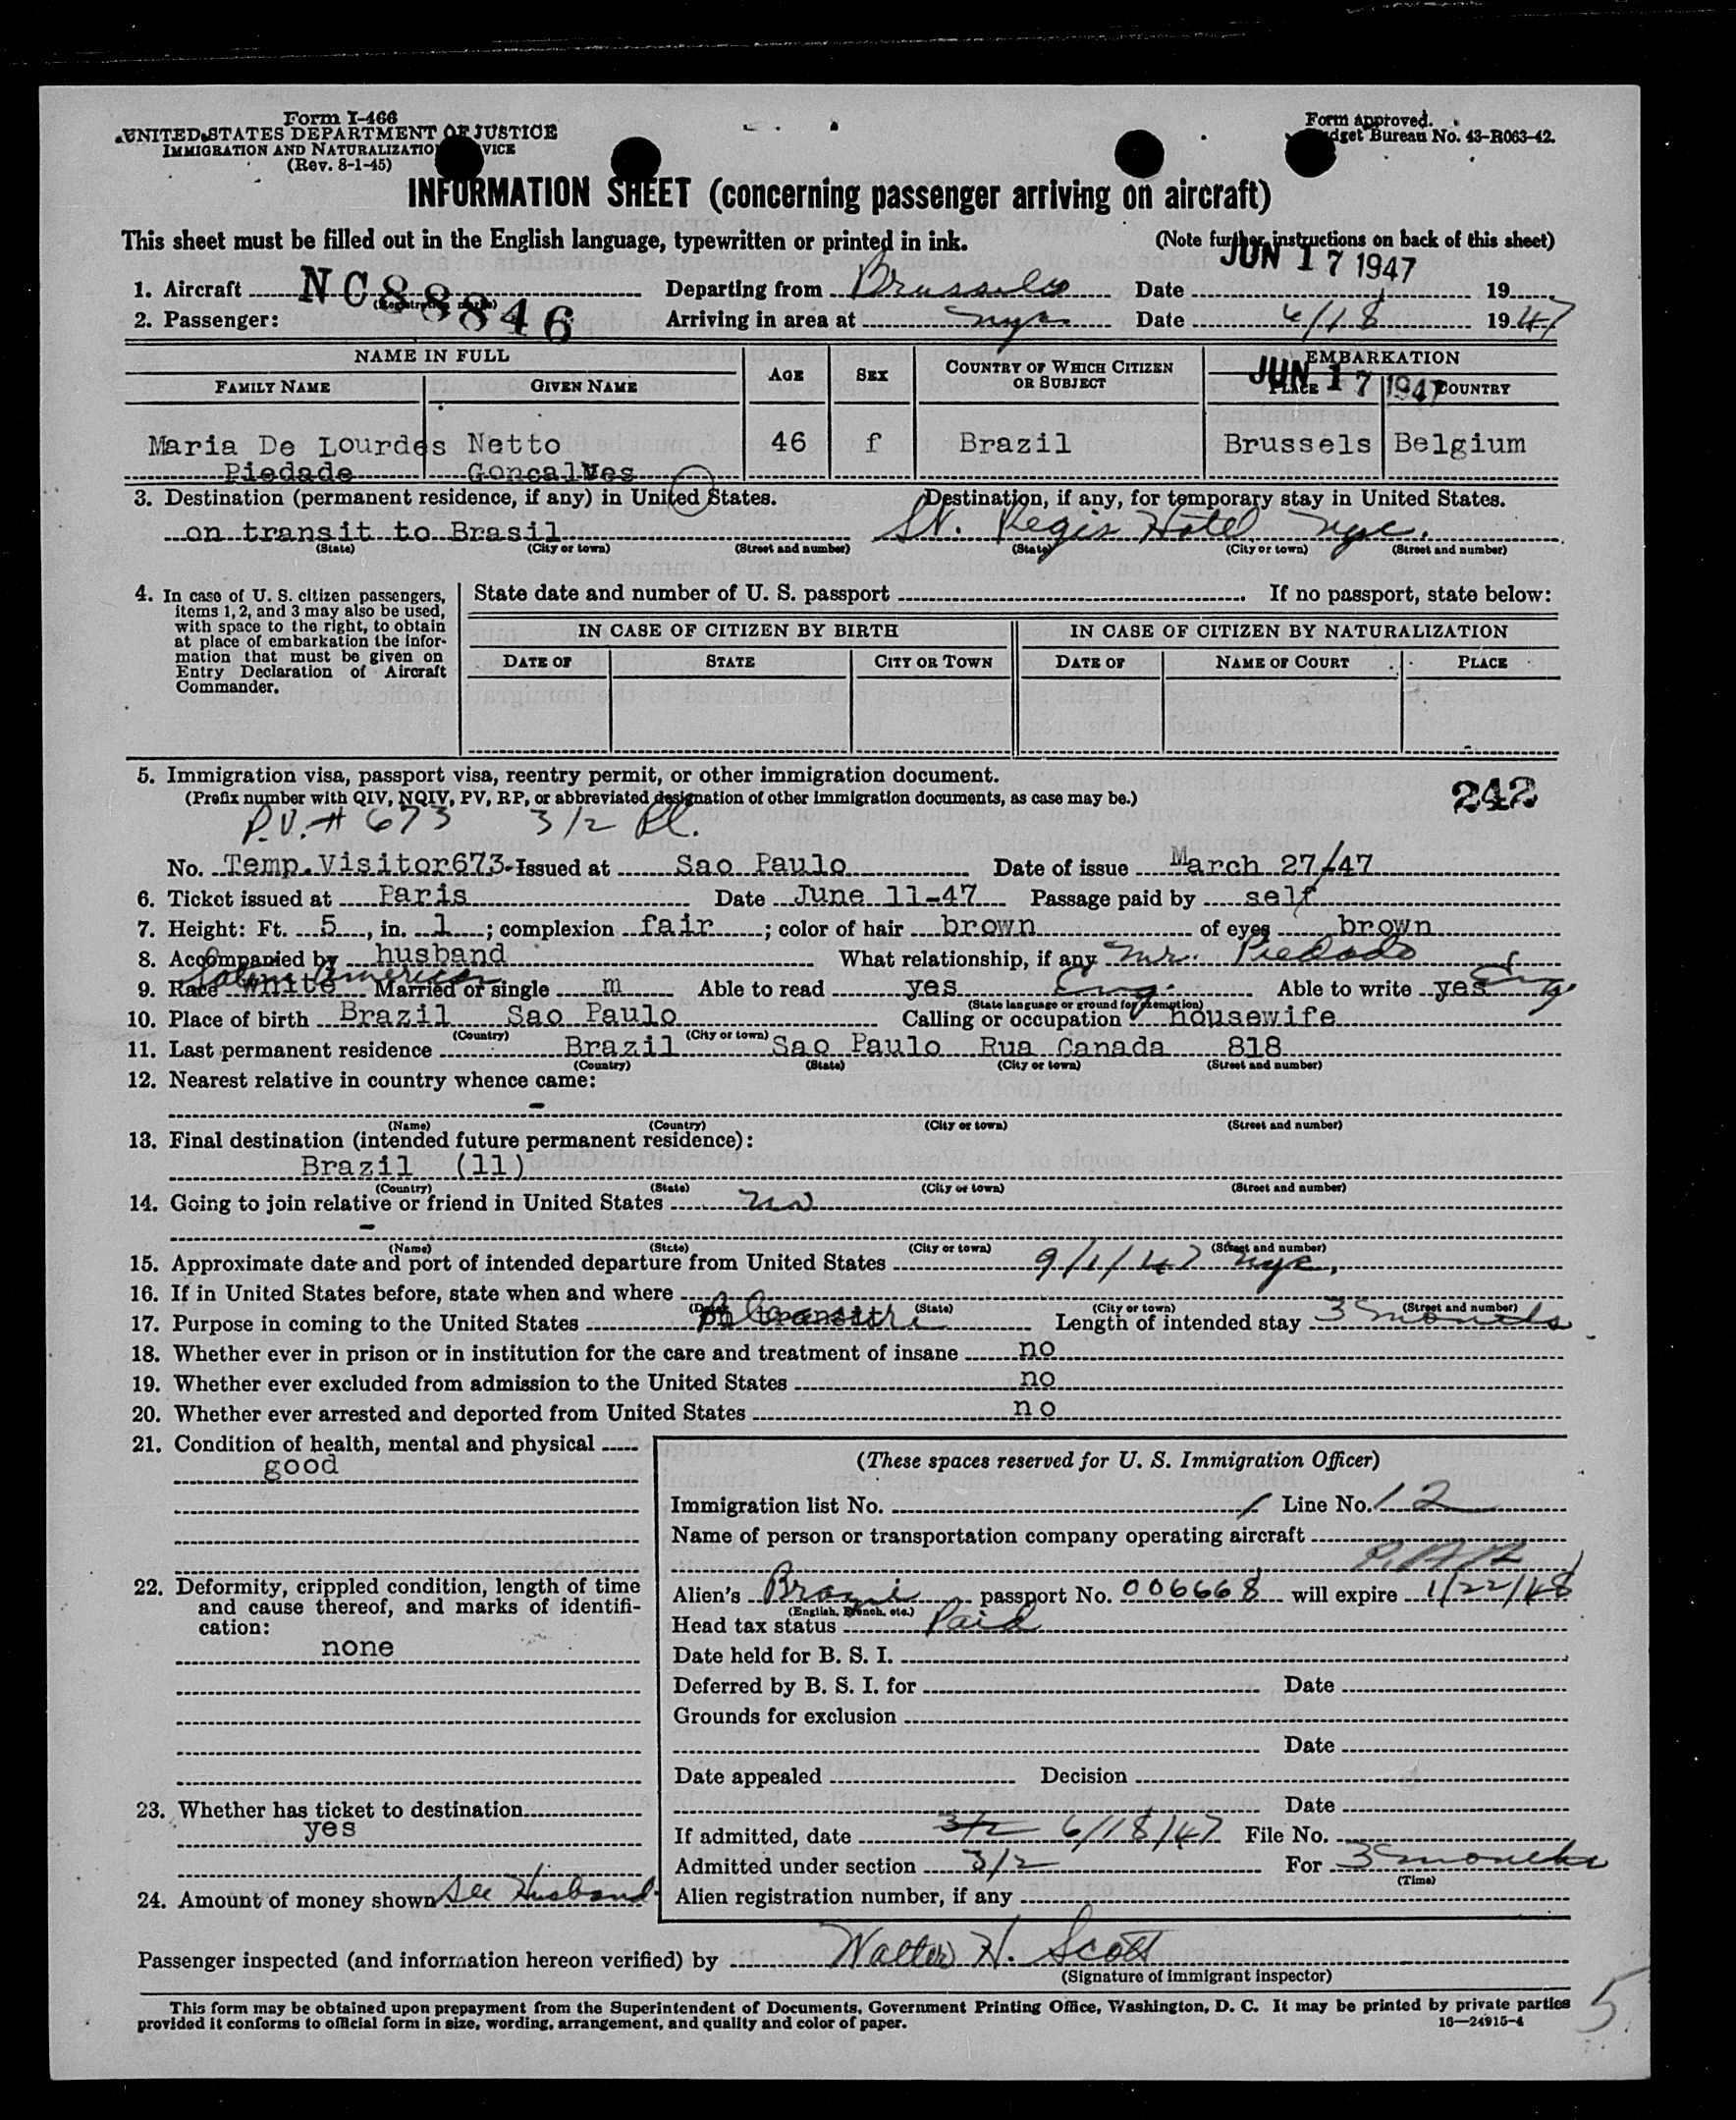 Form I-466
UNITED STATES DEPARTMENT OF JUSTICE
IMMIGRATION AND NATURALIZATION SERVICE
(Rev. 8-1-45)
Form approved.
Budget Bureau No. 43-R063-42.
INFORMATION SHEET (concerning passenger arriving on aircraft)
This sheet must be filled out in the English language, typewritten or printed in ink. (Note further instructions on back of this sheet)
JUN 17 1947
1. Aircraft NC88846 Departing from Brussels Date 19
(Registration marks)
2. Passenger: Arriving in area at nyc Date 6/18 1947
NAME IN FULL AGE SEX COUNTRY OF WHICH CITIZEN OR SUBJECT EMBARKATION
JUN 17 1947
FAMILY NAME GIVEN NAME PLACE COUNTRY
Maria De Lourdes Netto 46 f Brazil Brussels Belgium
Piedade Goncalves
3. Destination (permanent residence, if any) in United States. Destination, if any, for temporary stay in United States.
on transit to Brasil St. Regis Hotel nyc.
(State) (City or town) (Street and number) (State) (City or town) (Street and number)
4. In case of U. S. citizen passengers, items 1, 2, and 3 may also be used, with space to the right, to obtain at place of embarkation the information that must be given on Entry Declaration of Aircraft Commander.
State date and number of U. S. passport . If no passport, state below:
IN CASE OF CITIZEN BY BIRTH IN CASE OF CITIZEN BY NATURALIZATION
DATE OF STATE CITY OR TOWN DATE OF NAME OF COURT PLACE
5. Immigration visa, passport visa, reentry permit, or other immigration document.
(Prefix number with QIV, NQIV, PV, RP, or abbreviated designation of other immigration documents, as case may be.) 242
P.V. # 673 3/2 Pl.
No. Temp.Visitor673 Issued at Sao Paulo Date of issue March 27/47
6. Ticket issued at Paris Date June 11-47 Passage paid by self
7. Height: Ft. 5, in. 1; complexion fair; color of hair brown of eyes brown
8. Accompanied by husband What relationship, if any Mr. Piedade
Latin American
9. Race white Married or single m Able to read yes Eng. Able to write yes Eng
(State language or ground for exemption)
10. Place of birth Brazil Sao Paulo Calling or occupation housewife
(Country) (City or town)
11. Last permanent residence Brazil Sao Paulo Rua Canada 818
(Country) (State) (City or town) (Street and number)
12. Nearest relative in country whence came:
-
(Name) (Country) (City or town) (Street and number)
13. Final destination (intended future permanent residence):
Brazil (11)
(Country) (State) (City or town) (Street and number)
14. Going to join relative or friend in United States no
-
(Name) (State) (City or town) (Street and number)
15. Approximate date and port of intended departure from United States 9/1/47 nyc,
16. If in United States before, state when and where
(Date) (State) (City or town) (Street and number)
17. Purpose in coming to the United States Length of intended stay 3 months
18. Whether ever in prison or in institution for the care and treatment of insane no
19. Whether ever excluded from admission to the United States no
20. Whether ever arrested and deported from United States no
21. Condition of health, mental and physical
good
22. Deformity, crippled condition, length of time and cause thereof, and marks of identification:
none
23. Whether has ticket to destination
yes
24. Amount of money shown See Husband
(These spaces reserved for U. S. Immigration Officer)
Immigration list No. 1 Line No. 12
Name of person or transportation company operating aircraft
Alien's passport No. 006668 will expire 1/22/48
(English, French, etc.)
Head tax status Paid
Date held for B. S. I.
Deferred by B. S. I. for Date
Grounds for exclusion
Date
Date appealed Decision
Date
If admitted, date 3/2 6/18/47 File No.
Admitted under section 3/2 For 3 months
(Time)
Alien registration number, if any
Passenger inspected (and information hereon verified) by Walter H. Scott
(Signature of immigrant inspector)
This form may be obtained upon prepayment from the Superintendent of Documents, Government Printing Office, Washington, D. C. It may be printed by private parties
provided it conforms to official form in size, wording, arrangement, and quality and color of paper. 16—24915-4
5